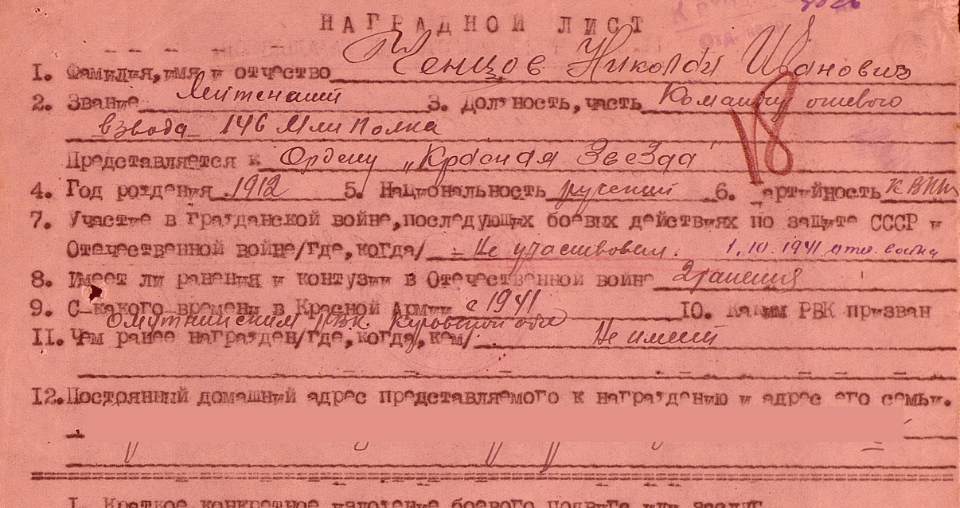 НАГРАДНОЙ ЛИСТ
1. Фамилия, имя и отчество Кенцов Николай Иванович
2. Звание Лейтенант 3. должность, часть Командир огневого
взвода 146 Мин Полка
18
Представляется к Ордену „Красная Звезда"
4. Год рождения 1912 5. Национальность русский 6. артийность
7. Участие в Гражданской войне, последующих боевых действиях по защите СССР и
Отечественной войне/где, когда/ - Не участвовал. 1.10.1941 отеч. война
8. Имеет ли ранения и контузии в Отечественной войне 2 ранения
9. С какого времени в Красной Армии с 1941 10. Каким РВК призван
Омутнинским РВК Кировской обл
11. Чем ранее награжден/где, когда, кем/ Не имеет
12. Постоянный домашний адрес представляемого к награждению и адрес его семьи.
I. Краткое конкретное изложение боевого подвига или заслуг